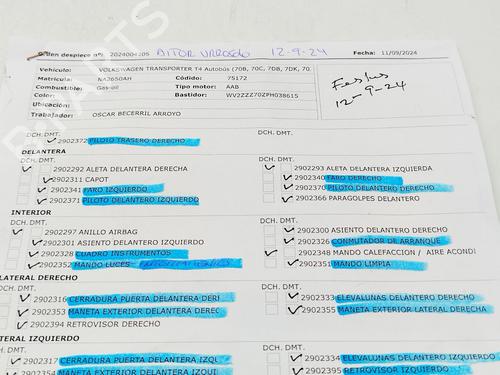 Orden despiece nº: 2024004205 AITOR URROSOLO 12-9-24 Fecha: 11/09/2024
Vehículo: VOLKSWAGEN TRANSPORTER T4 Autobús (70B, 70C, 7DB, 7DK, 70.
Matricula: NA2650AH Código: 75172
Combustible: Gas-oil Tipo motor: AAB
Color: Bastidor: WV2ZZZ70ZPH038615
Ubicación:
Trabajador: OSCAR BECERRIL ARROYO
12-9-24
DCH. DMT.
2902372 PILOTO TRASERO DERECHO
DELANTERA
DCH. DMT. DCH. DMT.
2902292 ALETA DELANTERA DERECHA 2902293 ALETA DELANTERA IZQUIERDA
2902311 CAPOT 2902340 FARO DERECHO
2902341 FARO IZQUIERDO 2902370 PILOTO DELANTERO DERECHO
2902371 PILOTO DELANTERO IZQUIERDO 2902366 PARAGOLPES DELANTERO
INTERIOR
DCH. DMT. DCH. DMT.
2902297 ANILLO AIRBAG 2902300 ASIENTO DELANTERO DERECHO
2902301 ASIENTO DELANTERO IZQUIERDO 2902326 CONMUTADOR DE ARRANQUE
2902328 CUADRO INSTRUMENTOS 2902348 MANDO CALEFACCION / AIRE ACONDI
2902352 MANDO LUCES 2902351 MANDO LIMPIA
LATERAL DERECHO
DCH. DMT. DCH. DMT.
2902316 CERRADURA PUERTA DELANTERA DERE 2902333 ELEVALUNAS DELANTERO DERECHO
2902353 MANETA EXTERIOR DELANTERA DEREC 2902355 MANETA EXTERIOR LATERAL DERECHA
2902394 RETROVISOR DERECHO
TERAL IZQUIERDO
DCH. DMT. DCH. DMT.
2902317 CERRADURA PUERTA DELANTERA IZQU 2902334 ELEVALUNAS DELANTERO IZQUIERDO
2902354 MANETA EXTERIOR DELANTERA IZQUI 2902395 RETROVISOR IZQUIERDO